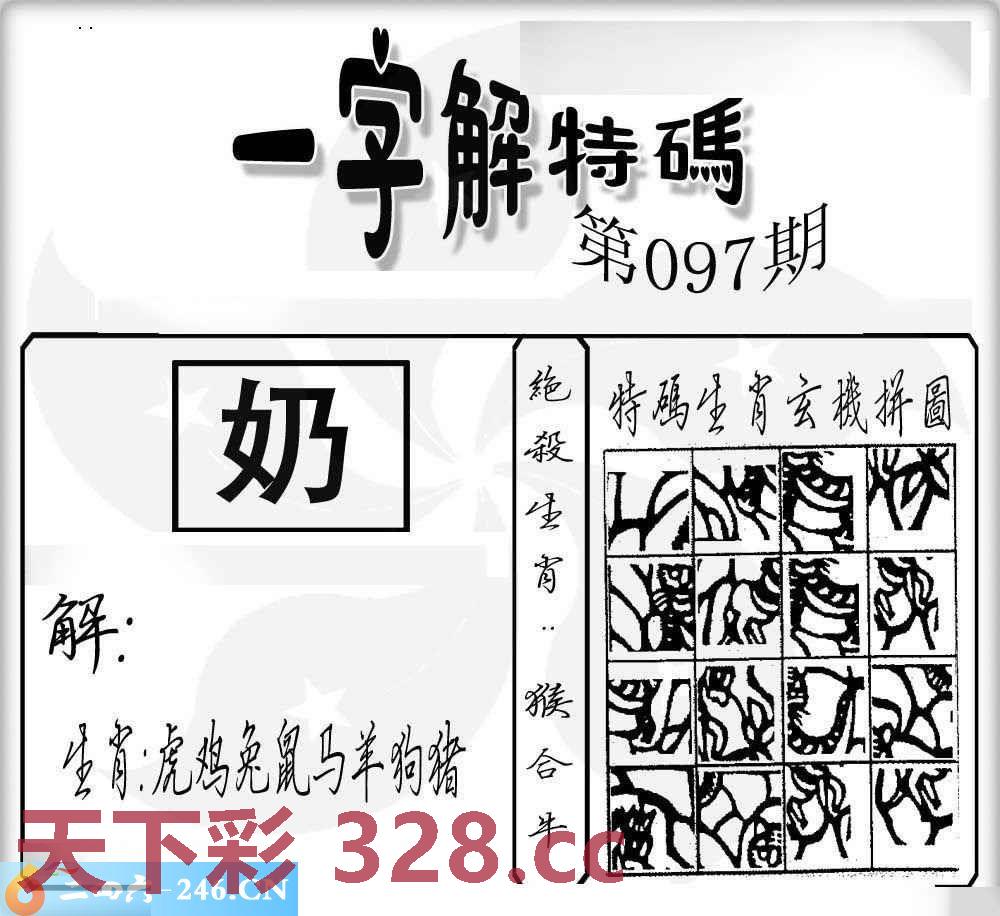 一字解特碼
第097期
奶
解:
生肖:虎鸡兔鼠马羊狗猪
絶殺生肖:猴合牛
特碼生肖玄機拼圖
天下彩 328.cc
二四六-246.CN